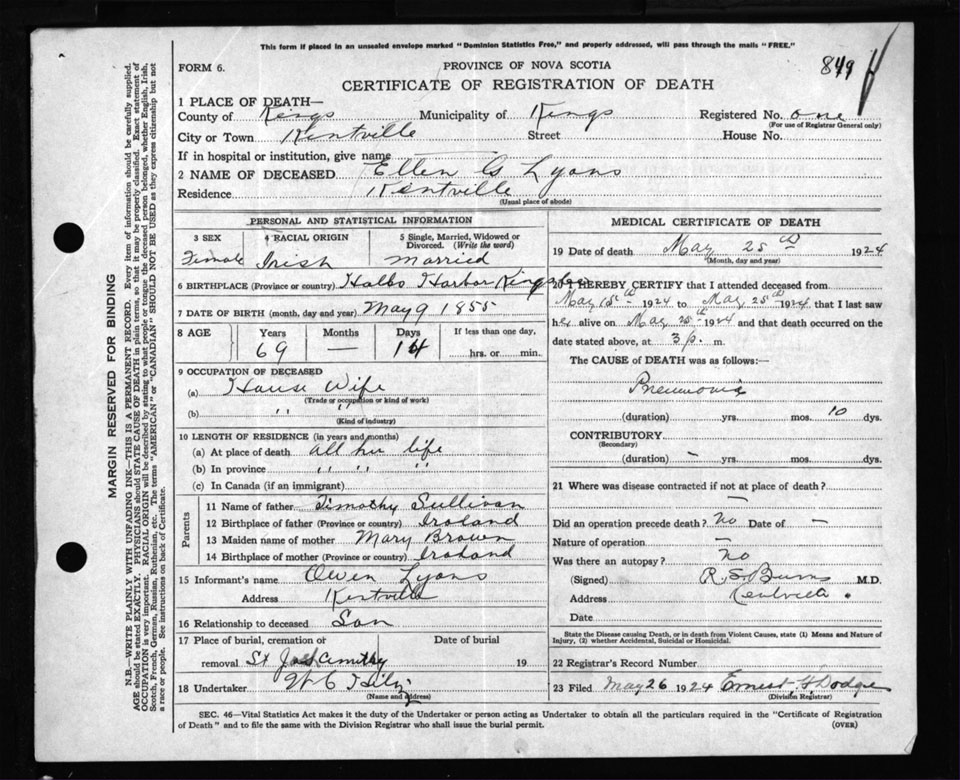 This form if placed in an unsealed envelope marked "Dominion Statistics Free," and properly addressed, will pass through the mails "FREE."
FORM 6.
PROVINCE OF NOVA SCOTIA
849
CERTIFICATE OF REGISTRATION OF DEATH
1 PLACE OF DEATH—
County of Kings Municipality of Kings Registered No. one
(For use of Registrar General only)
City or Town Kentville Street House No.
If in hospital or institution, give name
2 NAME OF DECEASED Ellen G Lyons
Residence Kentville
(Usual place of abode)
PERSONAL AND STATISTICAL INFORMATION
3 SEX 4 RACIAL ORIGIN 5 Single, Married, Widowed or Divorced. (Write the word)
Female Irish Married
6 BIRTHPLACE (Province or country) Halls Harbor Kings
7 DATE OF BIRTH (month, day and year) May 9 1855
8 AGE Years Months Days If less than one day,
69 — 14 hrs. or min.
9 OCCUPATION OF DECEASED
(a) House Wife
(Trade or occupation or kind of work)
(b) " "
(Kind of industry)
10 LENGTH OF RESIDENCE (in years and months)
(a) At place of death all her life
(b) In province " " "
(c) In Canada (if an immigrant)
Parents
11 Name of father Timothy Sullivan
12 Birthplace of father (Province or country) Ireland
13 Maiden name of mother Mary Brown
14 Birthplace of mother (Province or country) Ireland
15 Informant's name Owen Lyons
Address Kentville
16 Relationship to deceased Son
17 Place of burial, cremation or Date of burial
removal St Jos 19
18 Undertaker
(Name and address)
MEDICAL CERTIFICATE OF DEATH
19 Date of death May 25th 1924
(Month, day and year)
20 I HEREBY CERTIFY that I attended deceased from
May 15th 1924 to May 25th 1924 that I last saw
her alive on May 25th 1924 and that death occurred on the
date stated above, at 3 p. m.
The CAUSE of DEATH was as follows:
Pneumonia
(duration) yrs. mos. 10 dys.
CONTRIBUTORY
(Secondary)
(duration) — yrs. mos. dys.
21 Where was disease contracted if not at place of death?
—
Did an operation precede death? No Date of —
Nature of operation —
Was there an autopsy? No
(Signed) R. S. Burns M.D.
Address Kentville.
Date
State the Disease causing Death, or in death from Violent Causes, state (1) Means and Nature of
Injury, (2) whether Accidental, Suicidal or Homicidal.
22 Registrar's Record Number
23 Filed May 26 1924 Ernest H Dodge
(Division Registrar)
SEC. 46—Vital Statistics Act makes it the duty of the Undertaker or person acting as Undertaker to obtain all the particulars required in the "Certificate of Registration
of Death" and to file the same with the Division Registrar who shall issue the burial permit. (OVER)
MARGIN RESERVED FOR BINDING
N.B.—WRITE PLAINLY WITH UNFADING INK—THIS IS A PERMANENT RECORD. Every item of information should be carefully supplied.
AGE should be stated EXACTLY. PHYSICIANS should STATE CAUSE OF DEATH in plain terms, so that it may be properly classified. Exact statement of
OCCUPATION is very important. RACIAL ORIGIN will be described by stating to what people or tongue the deceased person belonged, whether English, Irish,
Scotch, French, German, Russian, Ruthenian, etc. The terms "AMERICAN" or "CANADIAN" SHOULD NOT BE USED as they express citizenship but not
a race or people. See instructions on back of Certificate.